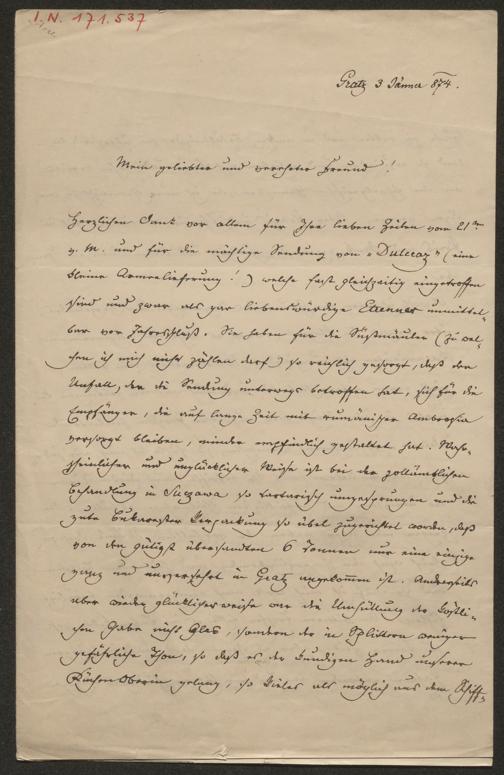 I. N. 171.537
Gratz 3 Jänner 874.
Mein geliebter und verehrter Freund!
Herzlichen Dank vor allem für Ihre lieben Zeilen vom 21ten
v. M. und für die mächtige Sendung von „Dulceaz" (eine
kleine Armeelieferung!) welche fast gleichzeitig eingetroffen
sind und zwar als gar liebenswürdige Etrennes unmittel-
bar vor Jahresschluß. Sie haben für die Süßmäuler (zu wel-
chen ich mich nicht zählen darf) so reichlich gesorgt, daß der
Unfall, der die Sendung unterwegs betroffen hat, sich für die
Empfänger, die auf lange Zeit mit rumänischer Ambrosia
versorgt bleiben, minder empfindlich gestaltet hat. Wahr-
scheinlicher und unglücklicher Weise ist bei der zollämtlichen
Behandlung in Suczawa so tartarisch umgesprungen und die
gute Bukarester Verpackung so übel zugerichtet worden, daß
von den gütigst übersandten 6 Tonnen nur eine einzige
ganz und unversehrt in Gratz angekommen ist. Anderseits
aber wieder glücklicherweise war die Umhüllung der köstli-
chen Gabe nicht Glas, sondern der in Splittern weniger
gefährliche Thon, so daß es der kundigen Hand unserer
Küchen Oberin gelang, so Vieles als möglich aus dem Schiff-